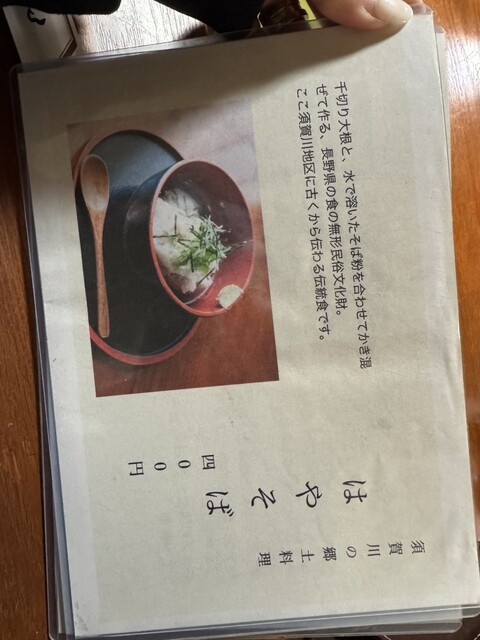 須賀川の郷土料理
はやそば
四〇〇円
千切り大根と、水で溶いたそば粉を合わせてかき混
ぜて作る、長野県の食の無形民俗文化財。
ここ須賀川地区に古くから伝わる伝統食です。